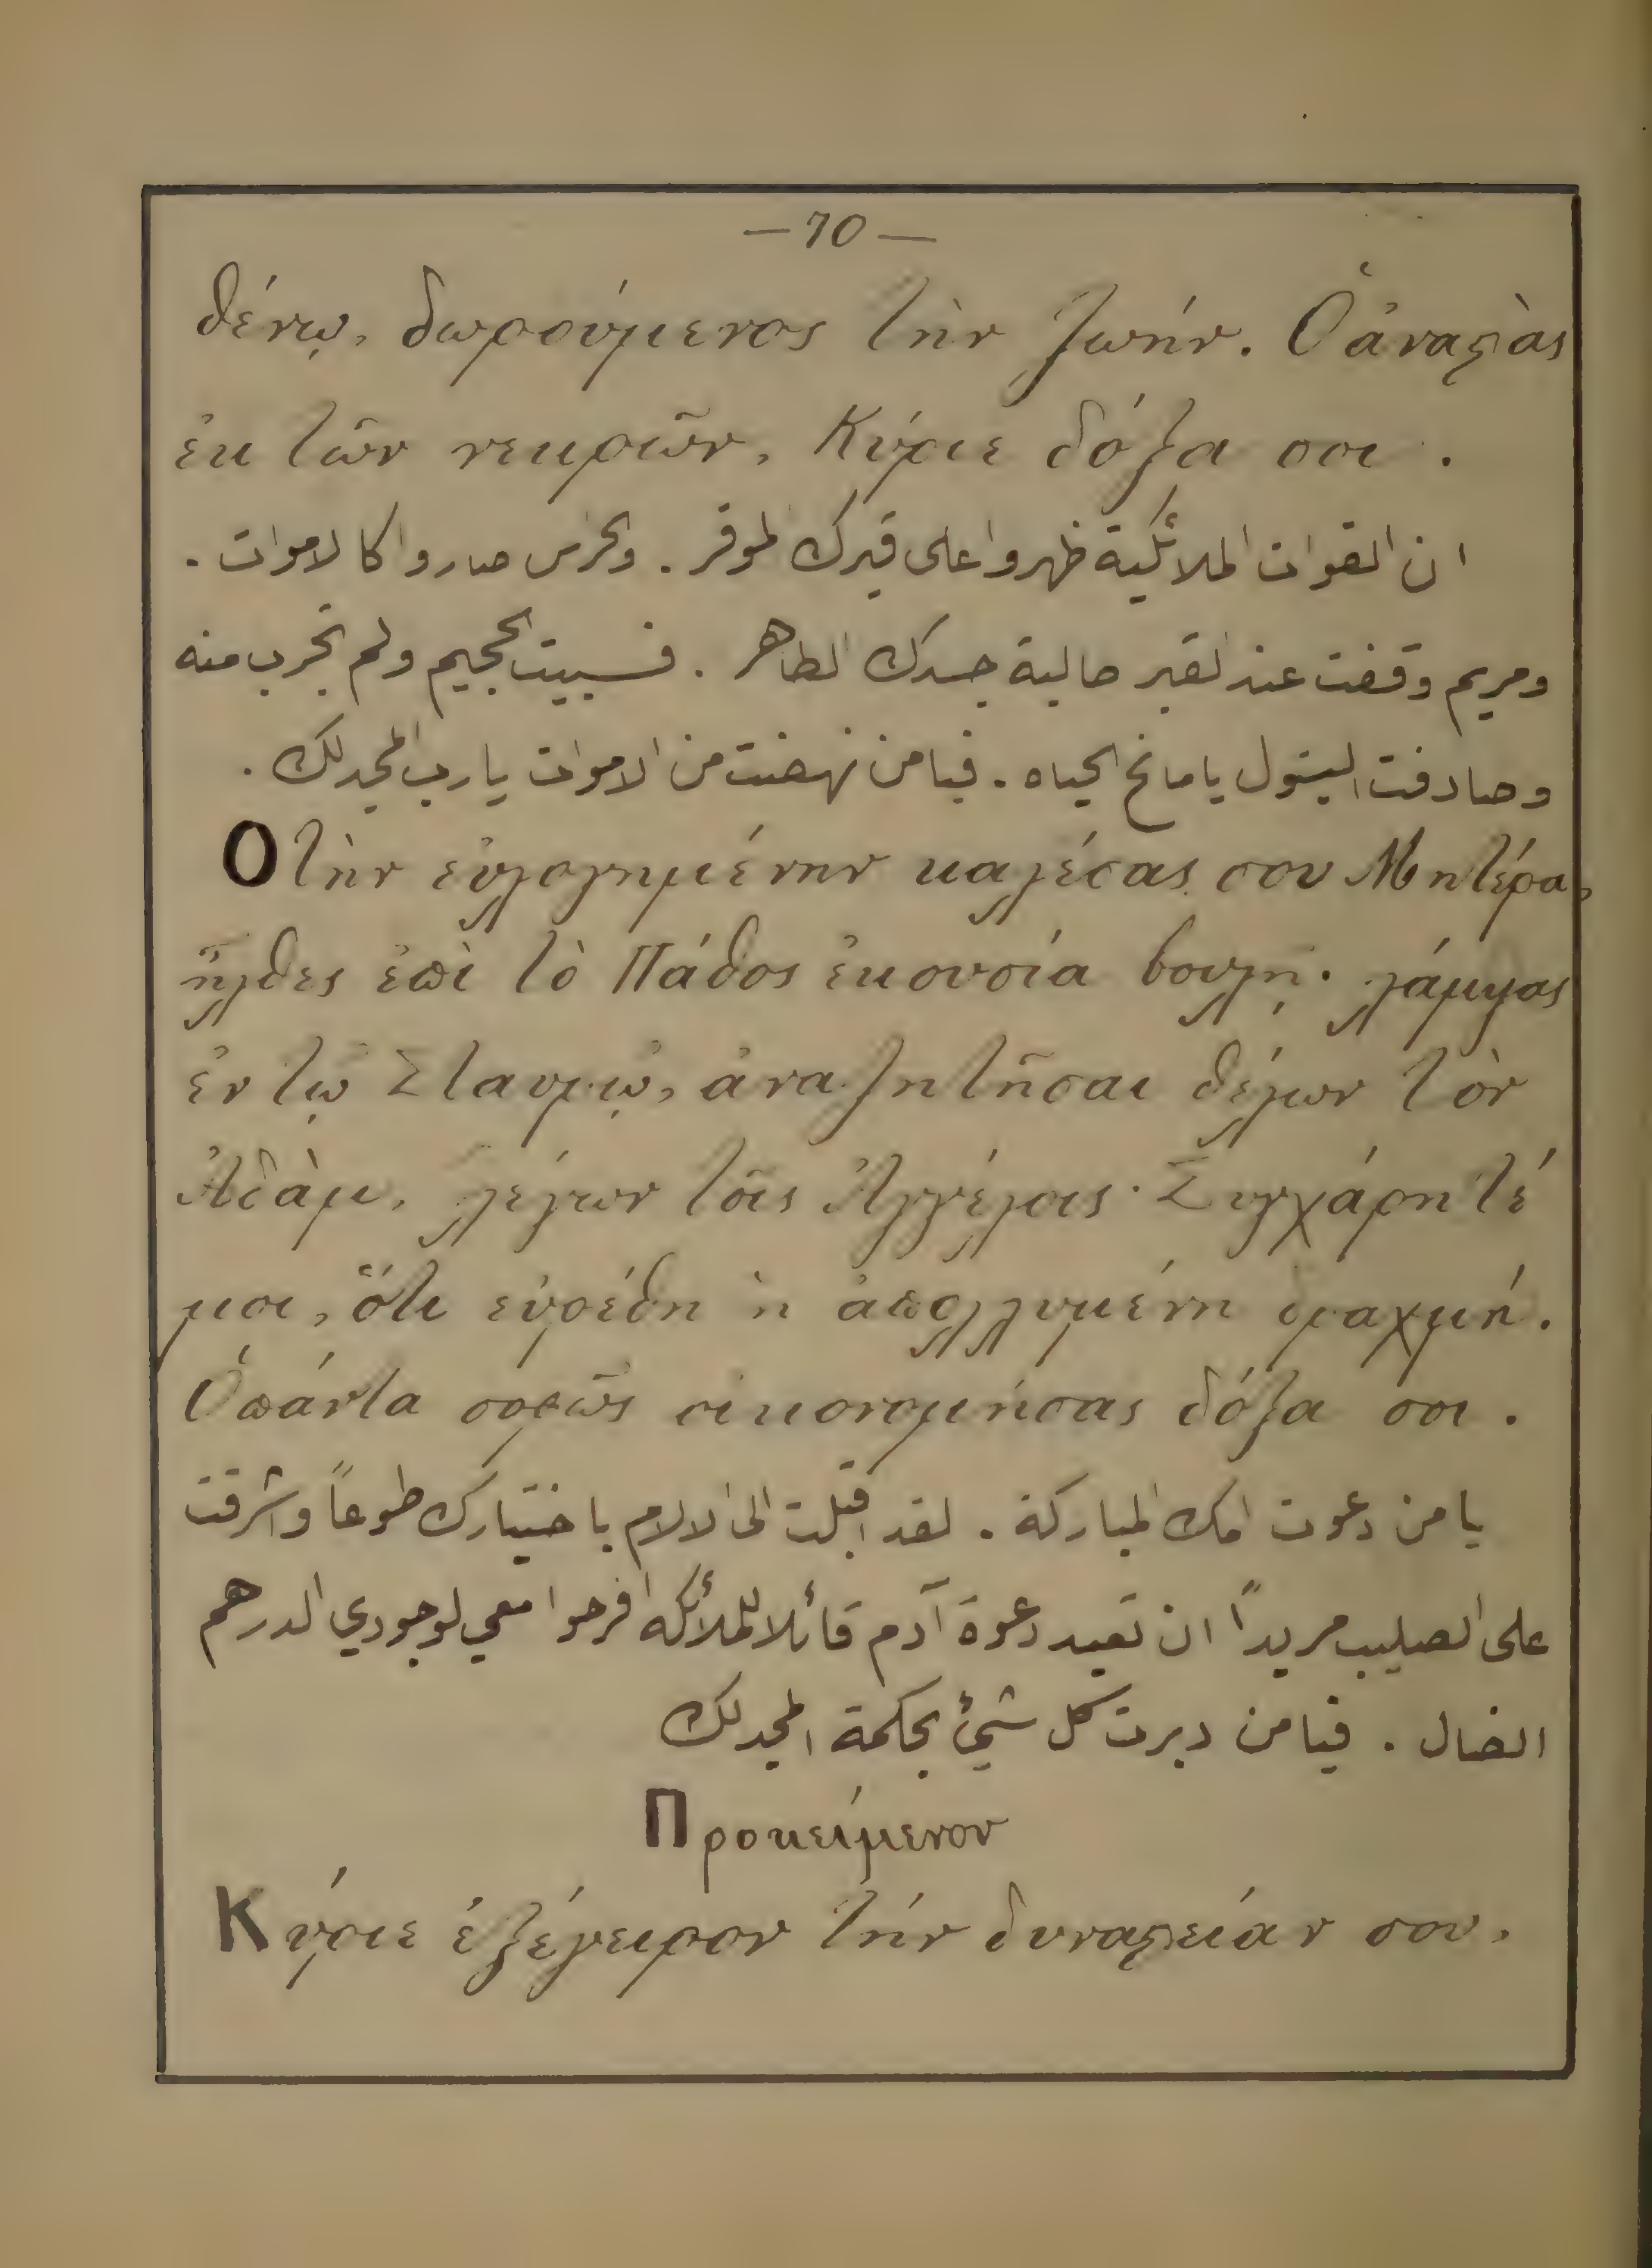 —70—
θένῳ, δωρούμενος τὴν ζωήν. Ὁ ἀναςὰς
ἐκ τῶν νεκρῶν, Κύριε δόξα σοι .
ان القوات الملائكية ظهروا على قبرك الموقر . والحراس صاروا كالاموات .
ومريم وقفت عند القبر طالبة جسدك الطاهر . فسبيت الجحيم ولم تجرب منه
وصادفت البتول يا مانح الحياه . فيا من نهضت من الاموات يا رب المجد لك .
Ὁ τὴν εὐλογημένην καλέσας σου Μητέρα,
ἦλθες ἐπὶ τὸ Πάθος ἑκουσία βουλῇ· λάμψας
ἐν τῳ Σταυρῳ, ἀναζητῆσαι θέλων τὸν
Ἀδὰμ, λέγων τοῖς Ἀγγέλοις· Συγχάρητέ
μοι, ὅτι εὑρέθη ἡ ἀπολλυμένη δραχμή.
Ὁ πάντα σοφῶς οἰκονομήσας δόξα σοι .
يا من دعوت امك المباركة . لقد اقبلت الى الالام باختيارك طوعاً واشرقت
على الصليب مريداً ان تعيد دعوة آدم قائلا للملائكه افرحوا معي لوجودي الدرهم
الضال . فيا من دبرت كل شيئ بحكمة المجد لك
Προκείμενον
Κύριε ἐξέγειρον τήν δυναςείάν σου,